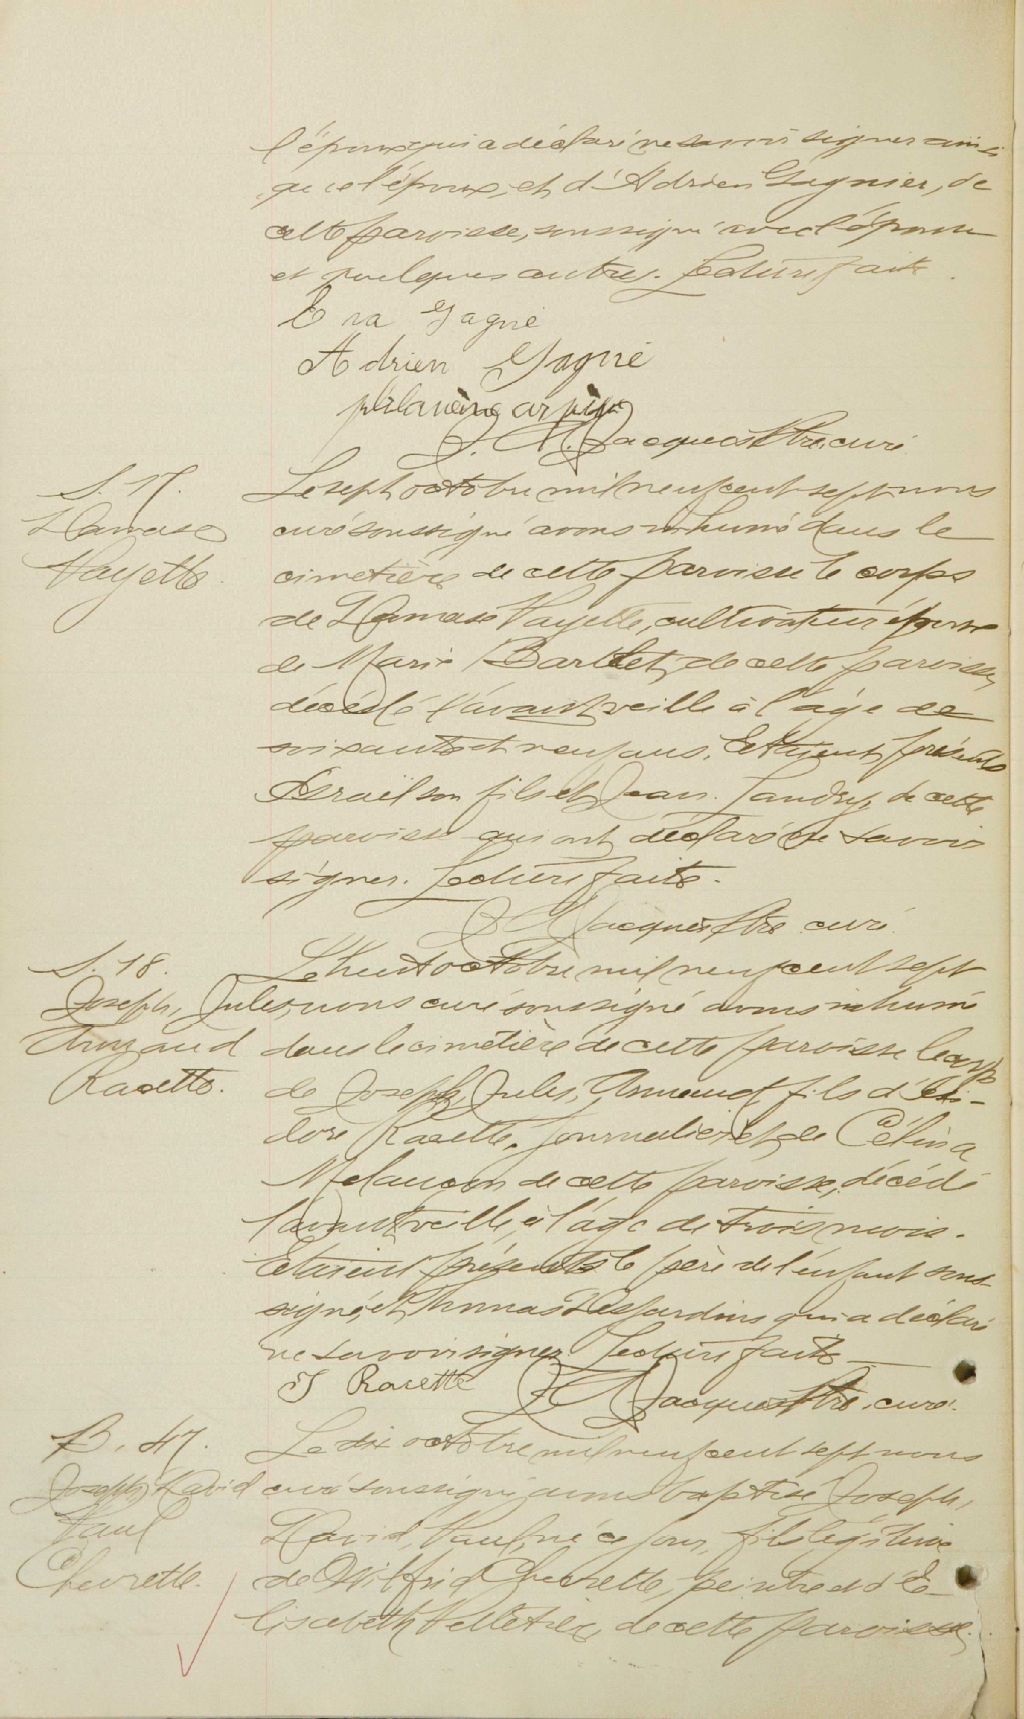 l'époux qui a déclaré ne savoir signer ainsi
que l'époux, et d'Adrien Gagnier, de
cette paroisse, soussigné avec l'épouse
et quelques autres. Lecture faite.
Eva Gagné
Adrien Gagné
J. A. Jacques Ptre. curé
S. 17.
Damase
Payette.
Le sept octobre mil neuf cent sept nous
curé soussigné avons inhumé dans le
cimetière de cette paroisse le corps
de Damase Payette, cultivateur époux
de Marie Barllet, de cette paroisse,
décédé l'avant veille à l'âge de
soixante et neuf ans. Etaient présents
Israël son fils et Jean Landry, de cette
paroisse qui ont déclaré ne savoir
signer. Lecture faite.
J A Jacques Ptre curé
S. 18.
Joseph, Jules,
Armand
Racette.
Le huit octobre mil neuf cent sept
nous curé soussigné avons inhumé
dans le cimetière de cette paroisse le corps
de Joseph, Jules, Armand, fils d'Isi-
dore Racette, journalier et de Célina
Melançon de cette paroisse, décédé
l'avant veille, à l'âge de trois mois.
Etaient présents le père de l'enfant sous-
signé, et Thomas Desjardins qui a déclaré
ne savoir signer Lecture faite
I Racette
J A Jacques Ptre. curé.
B. 47.
Joseph, David
Paul
Chevrette.
Le dix octobre mil neuf cent sept nous
curé soussigné avons baptisé Joseph,
David, Paul, né ce jour, fils légitime
de Wilfrid Chevrette, peintre et d'E-
lisabeth Pelletier, de cette paroisse.